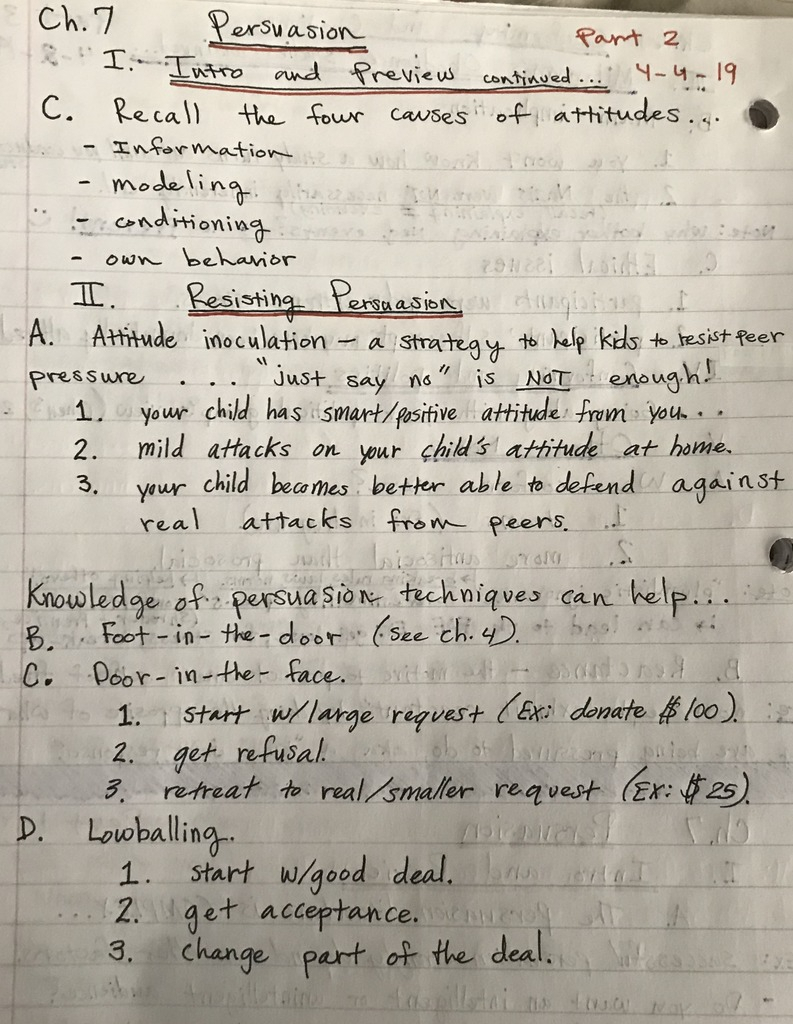 Ch. 7 Persuasion Part 2
I. Intro and Preview continued... 4-4-19
C. Recall the four causes of attitudes...
- Information
- modeling
- conditioning
- own behavior
II. Resisting Persuasion
A. Attitude inoculation - a strategy to help kids to resist peer
pressure .... "just say no" is NOT enough!
1. your child has smart/positive attitude from you...
2. mild attacks on your child's attitude at home.
3. your child becomes better able to defend against
real attacks from peers.
Knowledge of persuasion techniques can help...
B. Foot-in-the-door (see ch. 4).
C. Door-in-the-face.
1. start w/large request (Ex: donate $100).
2. get refusal.
3. retreat to real/smaller request (Ex: $25).
D. Lowballing.
1. start w/good deal.
2. get acceptance.
3. change part of the deal.